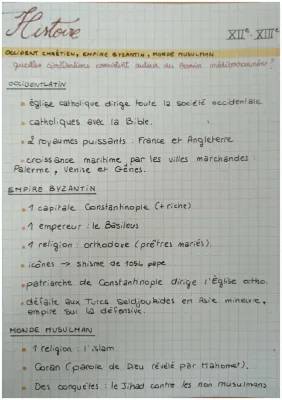 Histoire
XIIe - XIIIe
OCCIDENT CHRÉTIEN, EMPIRE BYZANTIN, MONDE MUSULMAN
quelles civilisations coexistent autour du bassin méditerranéen ?
OCCIDENT LATIN
église catholique dirige toute la société occidentale
catholiques avec la Bible.
2 royaumes puissants : France et Angleterre
croissance maritime par les villes marchandes :
Palerme, Venise et Gênes.
EMPIRE BYZANTIN
1 capitale Constantinople (+ riche)
1 empereur : le Basileus
1 religion : orthodoxe (prêtres mariés).
icônes → shisme de 1054 pape
patriarche de Constantinople dirige l'Église ortho.
défaite aux Turcs Seldjoukides en Asie mineure,
empire sur la défensive.
MONDE MUSULMAN
1 religion : l'islam
Coran (parole de Dieu révélé par Mahomet).
Des conquêtes : le Jihad contre les non musulmans